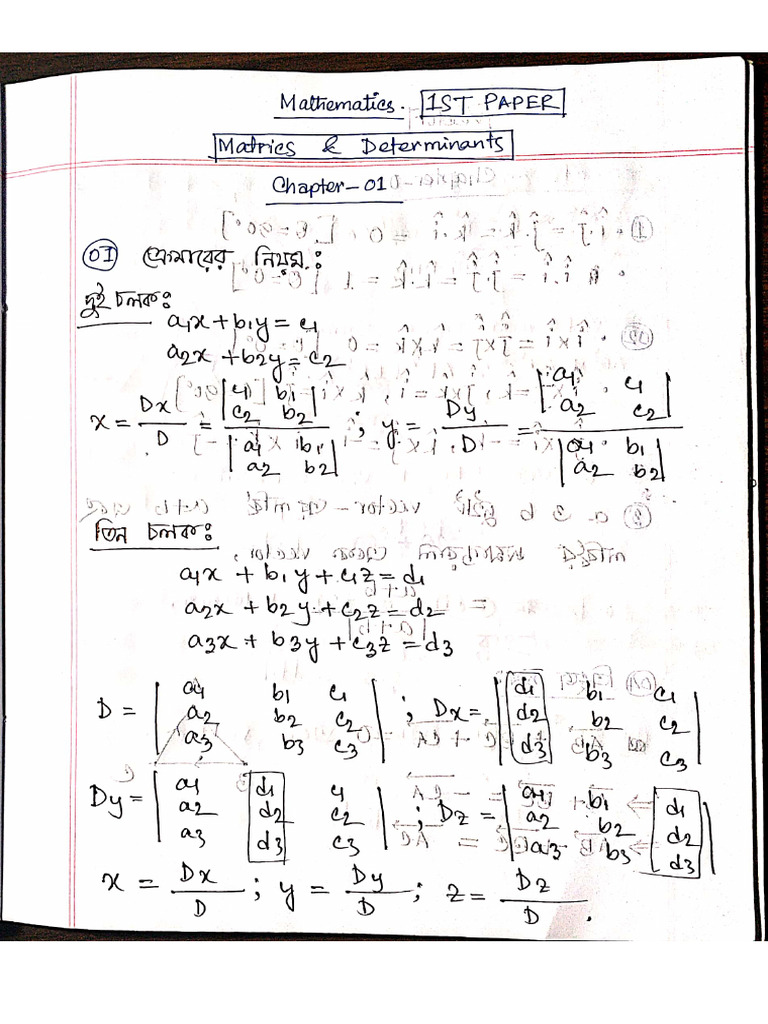 Mathematics. 1ST PAPER
Matrics & Determinants
Chapter-01
01 ক্রেমারের নিয়ম:
দুই চলক:
a1x + b1y = c1
a2x + b2y = c2
x = Dx/D = |c1 b1; c2 b2| / |a1 b1; a2 b2| ; y = Dy/D = |a1 c1; a2 c2| / |a1 b1; a2 b2|
তিন চলক:
a1x + b1y + c1z = d1
a2x + b2y + c2z = d2
a3x + b3y + c3z = d3
D = |a1 b1 c1; a2 b2 c2; a3 b3 c3| ; Dx = |d1 b1 c1; d2 b2 c2; d3 b3 c3|
Dy = |a1 d1 c1; a2 d2 c2; a3 d3 c3| ; Dz = |a1 b1 d1; a2 b2 d2; a3 b3 d3|
x = Dx/D ; y = Dy/D ; z = Dz/D .